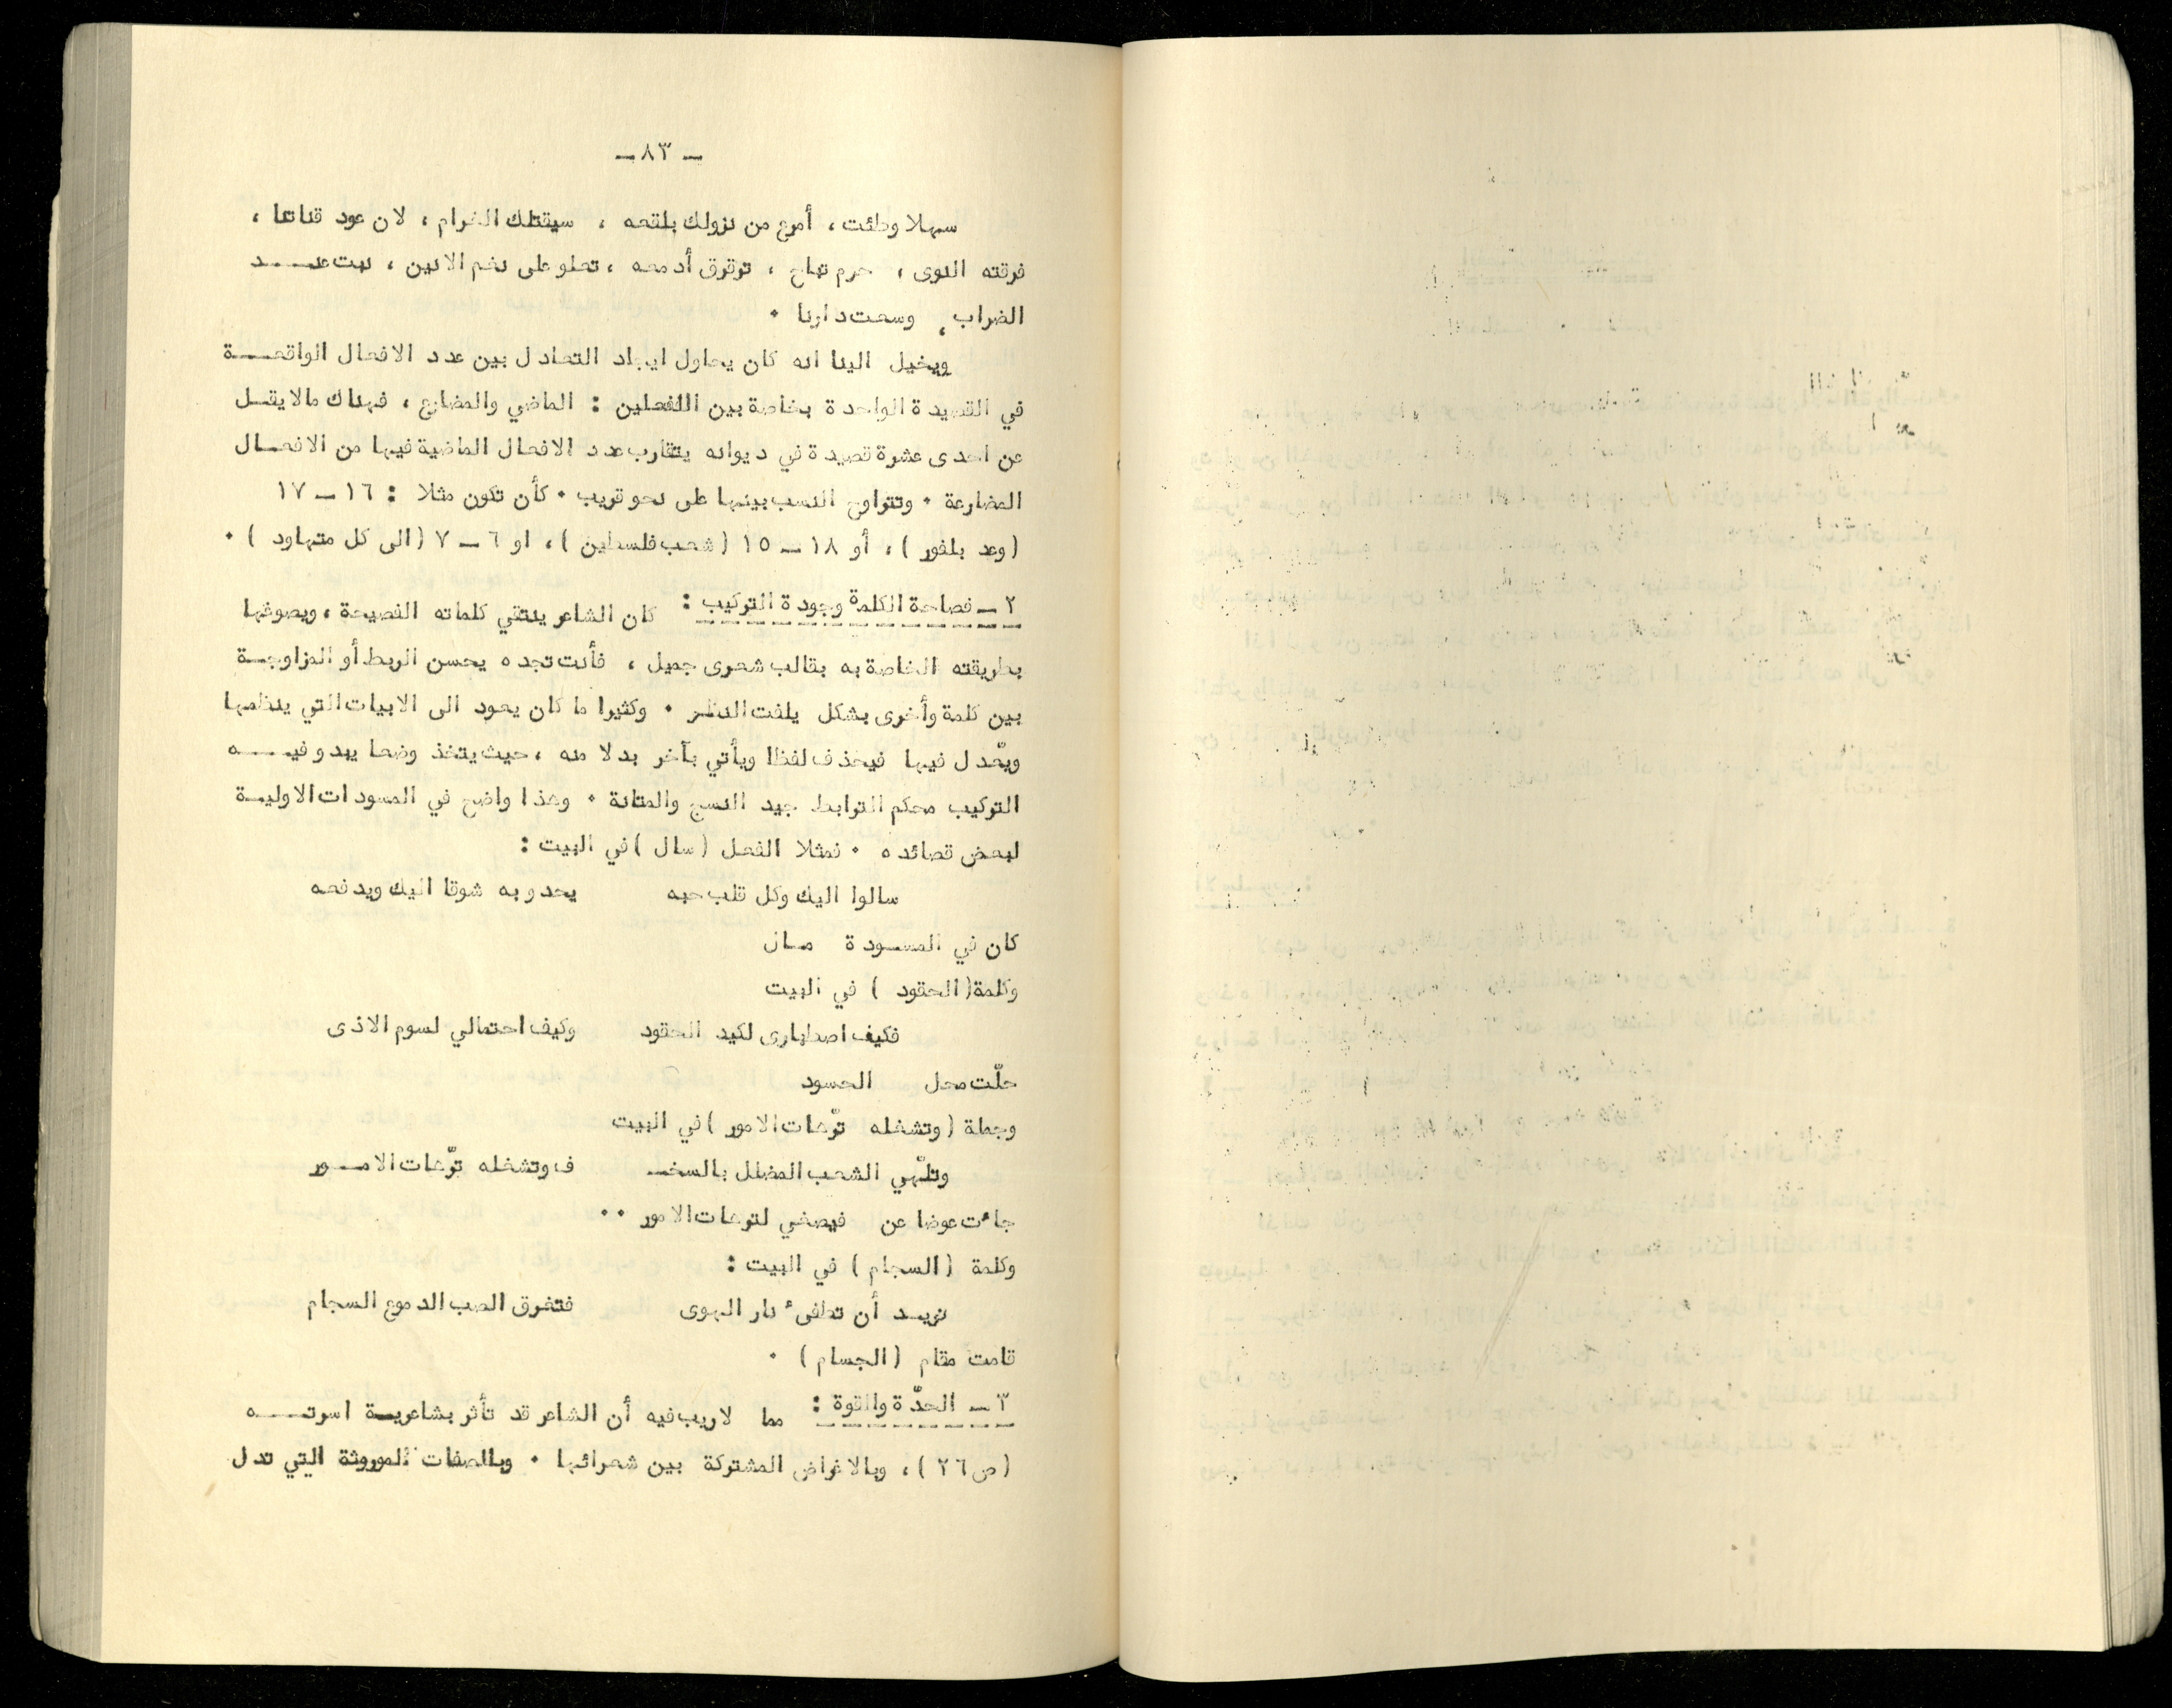 - ٨٣ -
سهلا وطئت ، أمرع من نزولك بلقعه ، سيقتلك الغرام ، لان عود قناتها ،
فرقته النوى ، حرم تباح ، ترقرق أدمعه ، تعلو على نغم الانين ، نبت عـــد
الضراب ، وسعت دارنا ٠
ويخيل الينا انه كان يحاول ايجاد التعادل بين عدد الافعال الواقعـــة
في القصيدة الواحدة بخاصة بين الفعلين : الماضي والمضارع ، فهناك مالا يقـل
عن احدى عشرة قصيدة في ديوانه يتقارب عدد الافعال الماضية فيها من الافعـال
المضارعة ٠ وتتراوح النسب بينها على نحو قريب ٠ كأن تكون مثلا : ١٦ ــ ١٧
(وعد بلفور ) ، أو ١٨ ــ ١٥ (شعب فلسطين ) ، او ٦ ــ ٧ (الى كل متهاود ) ٠
٢ ــ فصاحة الكلمة وجودة التركيب : كان الشاعر ينتقي كلماته الفصيحة ، ويصوغها
بطريقته الخاصة به بقالب شعرى جميل ، فأنت تجده يحسن الربط أو المزاوجـة
بين كلمة وأخرى بشكل يلفت النظـر ٠ وكثيرا ما كان يعود الى الابيات التي ينظمها
ويعّدل فيها فيحذف لفظا ويأتي بآخر بدلا منه ، حيث يتخذ وضعا يبدو فيـــه
التركيب محكم الترابط جيد النسج والمتانة ٠ وهذا واضح في المسودات الاوليـة
لبعض قصائده ٠ فمثلا الفعل (سال ) في البيت :
سالوا اليك وكل قلب حبه يحدو به شوقا اليك ويدفعه
كان في المسـودة مـال
وكلمة (الحقود ) في البيت
فكيف اصطبارى لكيد الحقود وكيف احتمالي لسوم الاذى
حلّت محل الحسود
وجملة (وتشغله ترّهات الامور ) في البيت
وتلّهي الشعب المضلل بالسخـ ف وتشغله ترّهات الامـور
جاءت عوضا عن فيصغي لترهات الامور ٠٠
وكلمة (السجام ) في البيت :
تريـد أن تطفىء نار الهوى فتغرق الصب الدموع السجام
قامت مقام (الجسام ) ٠
٣ ــ الحدّة والقوة : مما لاريب فيه أن الشاعر قد تأثر بشاعريـة اسرتـــه
(ص ٢٦ ) ، وبالاغراض المشتركة بين شعرائها ٠ وبالصفات الموروثة التي تدل